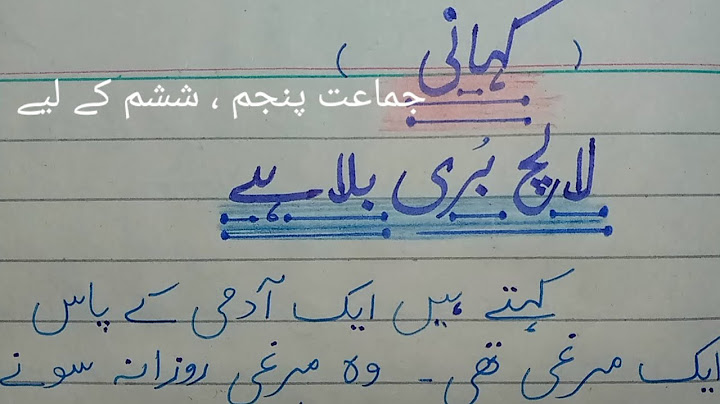 ( کہانی )
جماعت پنجم ، ششم کے لیے
لالچ بُری بلا ہے
کہتے ہیں ایک آدمی کے پاس
ایک مرغی تھی ۔ وہ مرغی روزانہ سونے